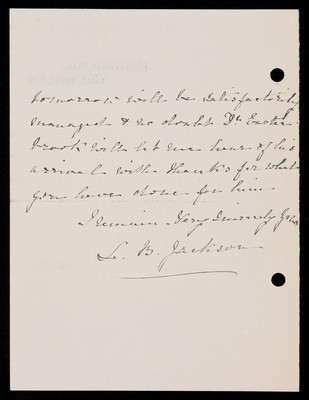 tomorrow will be satisfactorily
managed & no doubt Dr Easter-
brook will let me hear of his
arrival with thanks for what
you have done for him
I remain Very Sincerely Yours
L. B. Jackson